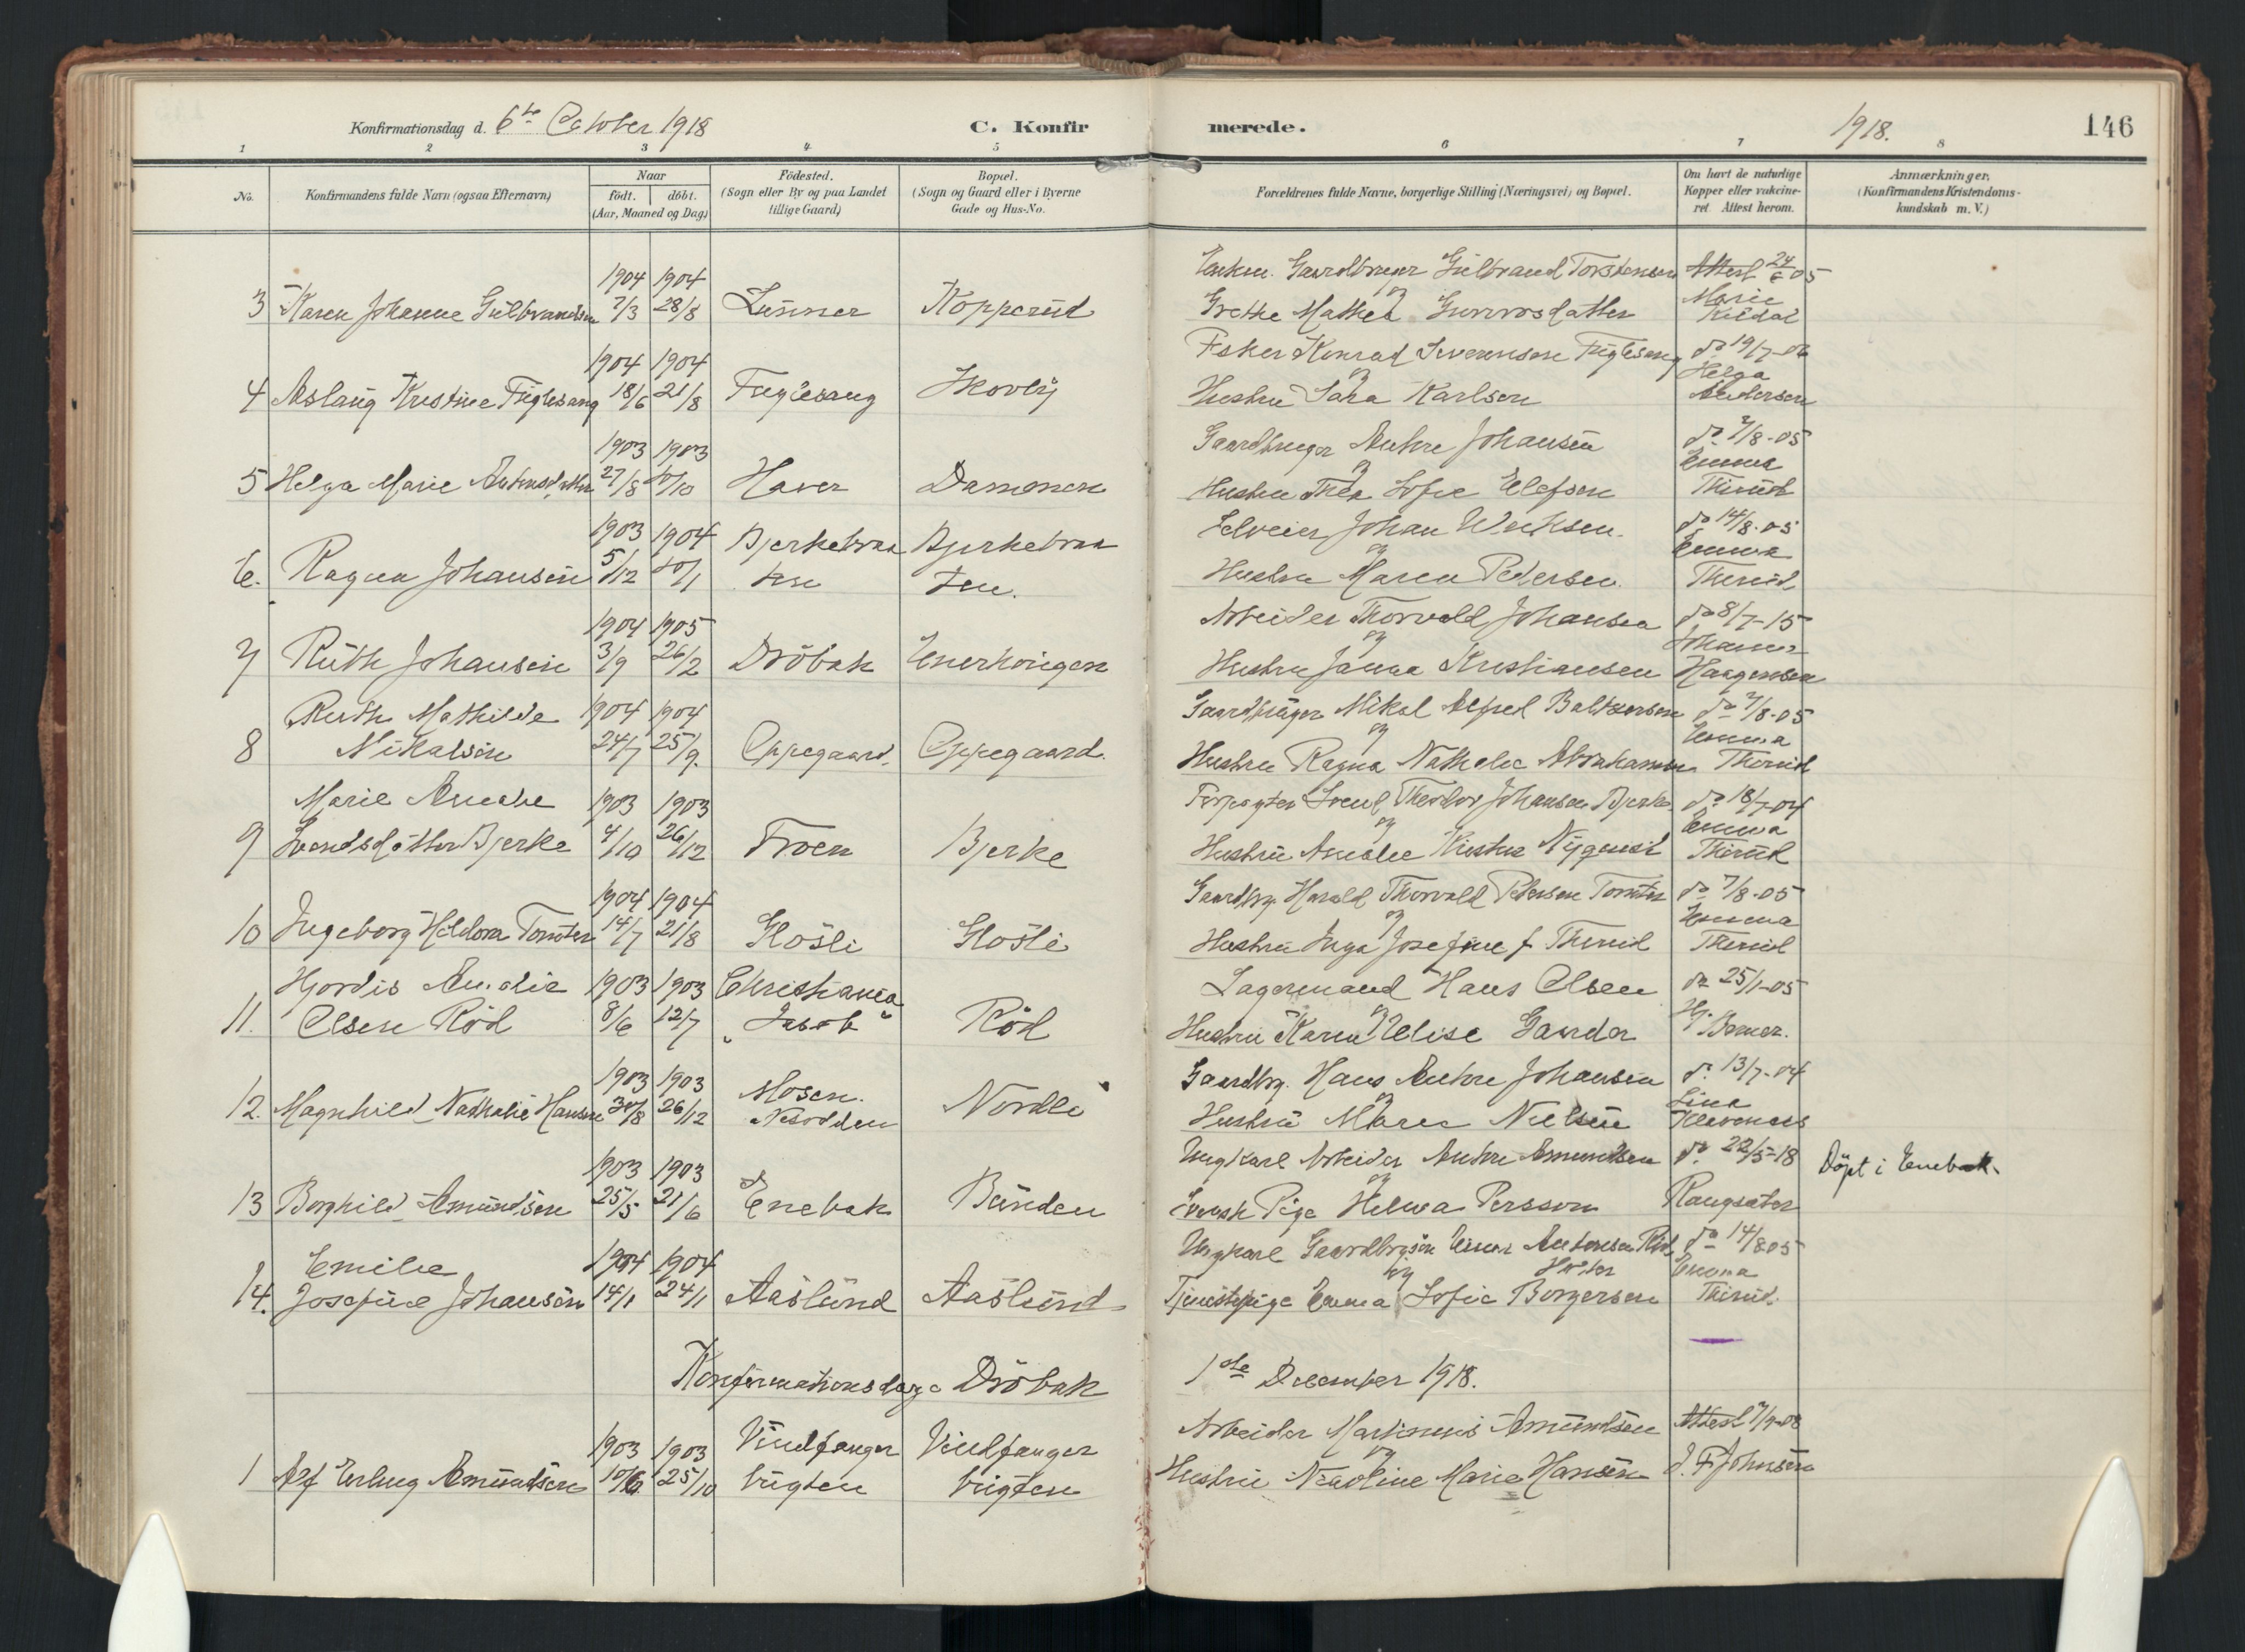 Konfirmationsdag d. 6te October 1918
C. Konfirmerede.
1918.
146
1 2 3 4 5 6 7 8
No.
Konfirmandens fulde Navn (ogsaa Efternavn)
Naar
födt. döbt.
(Aar, Maaned og Dag)
Födested.
(Sogn eller By og paa Landet
tillige Gaard)
Bopæl.
(Sogn og Gaard eller i Byerne
Gade og Hus-No.
Forældrenes fulde Navne, borgerlige Stilling (Næringsvei) og Bopæl.
Om havt de naturlige
Kopper eller vakcine-
ret Attest herom.
Anmærkninger.
(Konfirmandens Kristendoms-
kundskab m. V.)
1904 1904 Gaardbruger Gulbrand Torstensen Attest 24/6 05
og Marie
3 Karen Johanne Gulbrandsen 7/3 28/8 Linner Kopperud Grethe Mathea Kildal
1904 1904 Fisker Konrad Severensen Fuglesang do 19/7-06
og Helga
4 Aslaug Kristine Fuglesang 18/6 21/8 Fuglesang Skovly Hustru Sara Karlsen Andersen
1903 1903 Gaardbruger Anton Johansen do 7/8-05
og Emma
5 Helga Marie Antonsdatter 27/8 10 Haver Dammen Hustru Thea Sofie Elefsen Thirud
1903 1904 Bjerkebraa Bjerkebraa Selveier Johan do 14/8-05
og Emma
6. Ragna Johansen 5/12 10/1 ten ten. Hustru Maren Pedersen. Thirud
1904 1905 Arbeider Thorvald Johansen do 8/7-15
og Johanne
7 Ruth Johansen 3/9 26/2 Dröbak Hustru Janna Kristiansen Haagensen
Ruth Mathilde 1904 1904 Gaardbruger Mikal Alfred Baltzersen do 7/8-05
og Emma
8 Mikalsen 24/7 25/9. Oppegaard. Oppegaard. Hustru Ragna Nathalie Abrahamsen Thirud
Marie Amalie 1903 1903 Forpagter Svend Theodor Johansen Bjerke do 18/7-04
og Emma
9 Svendsdatter Bjerke 4/10 26/12 Froen Bjerke Hustru Amalie Kirstine Nygaard Thirud
1904 1904 Gaardbrg. Harald Thorvald Pedersen Tomter do 7/8-05
og Emma
10 Ingeborg Heldora Tomter 14/7 21/8 Glosli Glosli Hustru Inga Josefine f. Thirud Thirud
Hjordis Amalie 1903 1903 Christiania Lagermand Hans Olsen do 25/1-05
og Hj.
11. Olsen Röd 8/6 12/7 „Jakob“ Röd Hustru Karen Elise Gaarder Berner.
1903 1903 Mosen. Gaardbrg. Hans Anton Johansen do 13/7-04
og Lina
12. Magnhild Nathalie Hansen 30/8 26/12 Nesodden Nordli Hustru Maren Nielsen Kleveness
1903 1903 Ungkarl Arbeider Anton Amundsen do 22/5-18 Döpt i Enebak.
og
13 Borghild Amundsen 25/5 21/6 Enebak Bunden Svensk Pige Helma Persson Rangsæter
Emilie 1904 1904 Ungkarl Gaardbrgsön Einar Antonsen Röd do 14/8 05
og Emma
14. Josefine Johansen 14/1 24/1 Aaslund Aaslund Tjenestepige Emma Sofie Borgersen Thirud.
Konfirmationsdag: Dröbak 1ste December 1918.
1903 1903 Vindfanger Vindfanger Arbeider Martinius Amundsen Attest 7/9-08
og
1 Alf Erling Amundsen 10/6 25/10 bugten bugten Hustru Nikoline Marie Hansen J. F. Johnsen